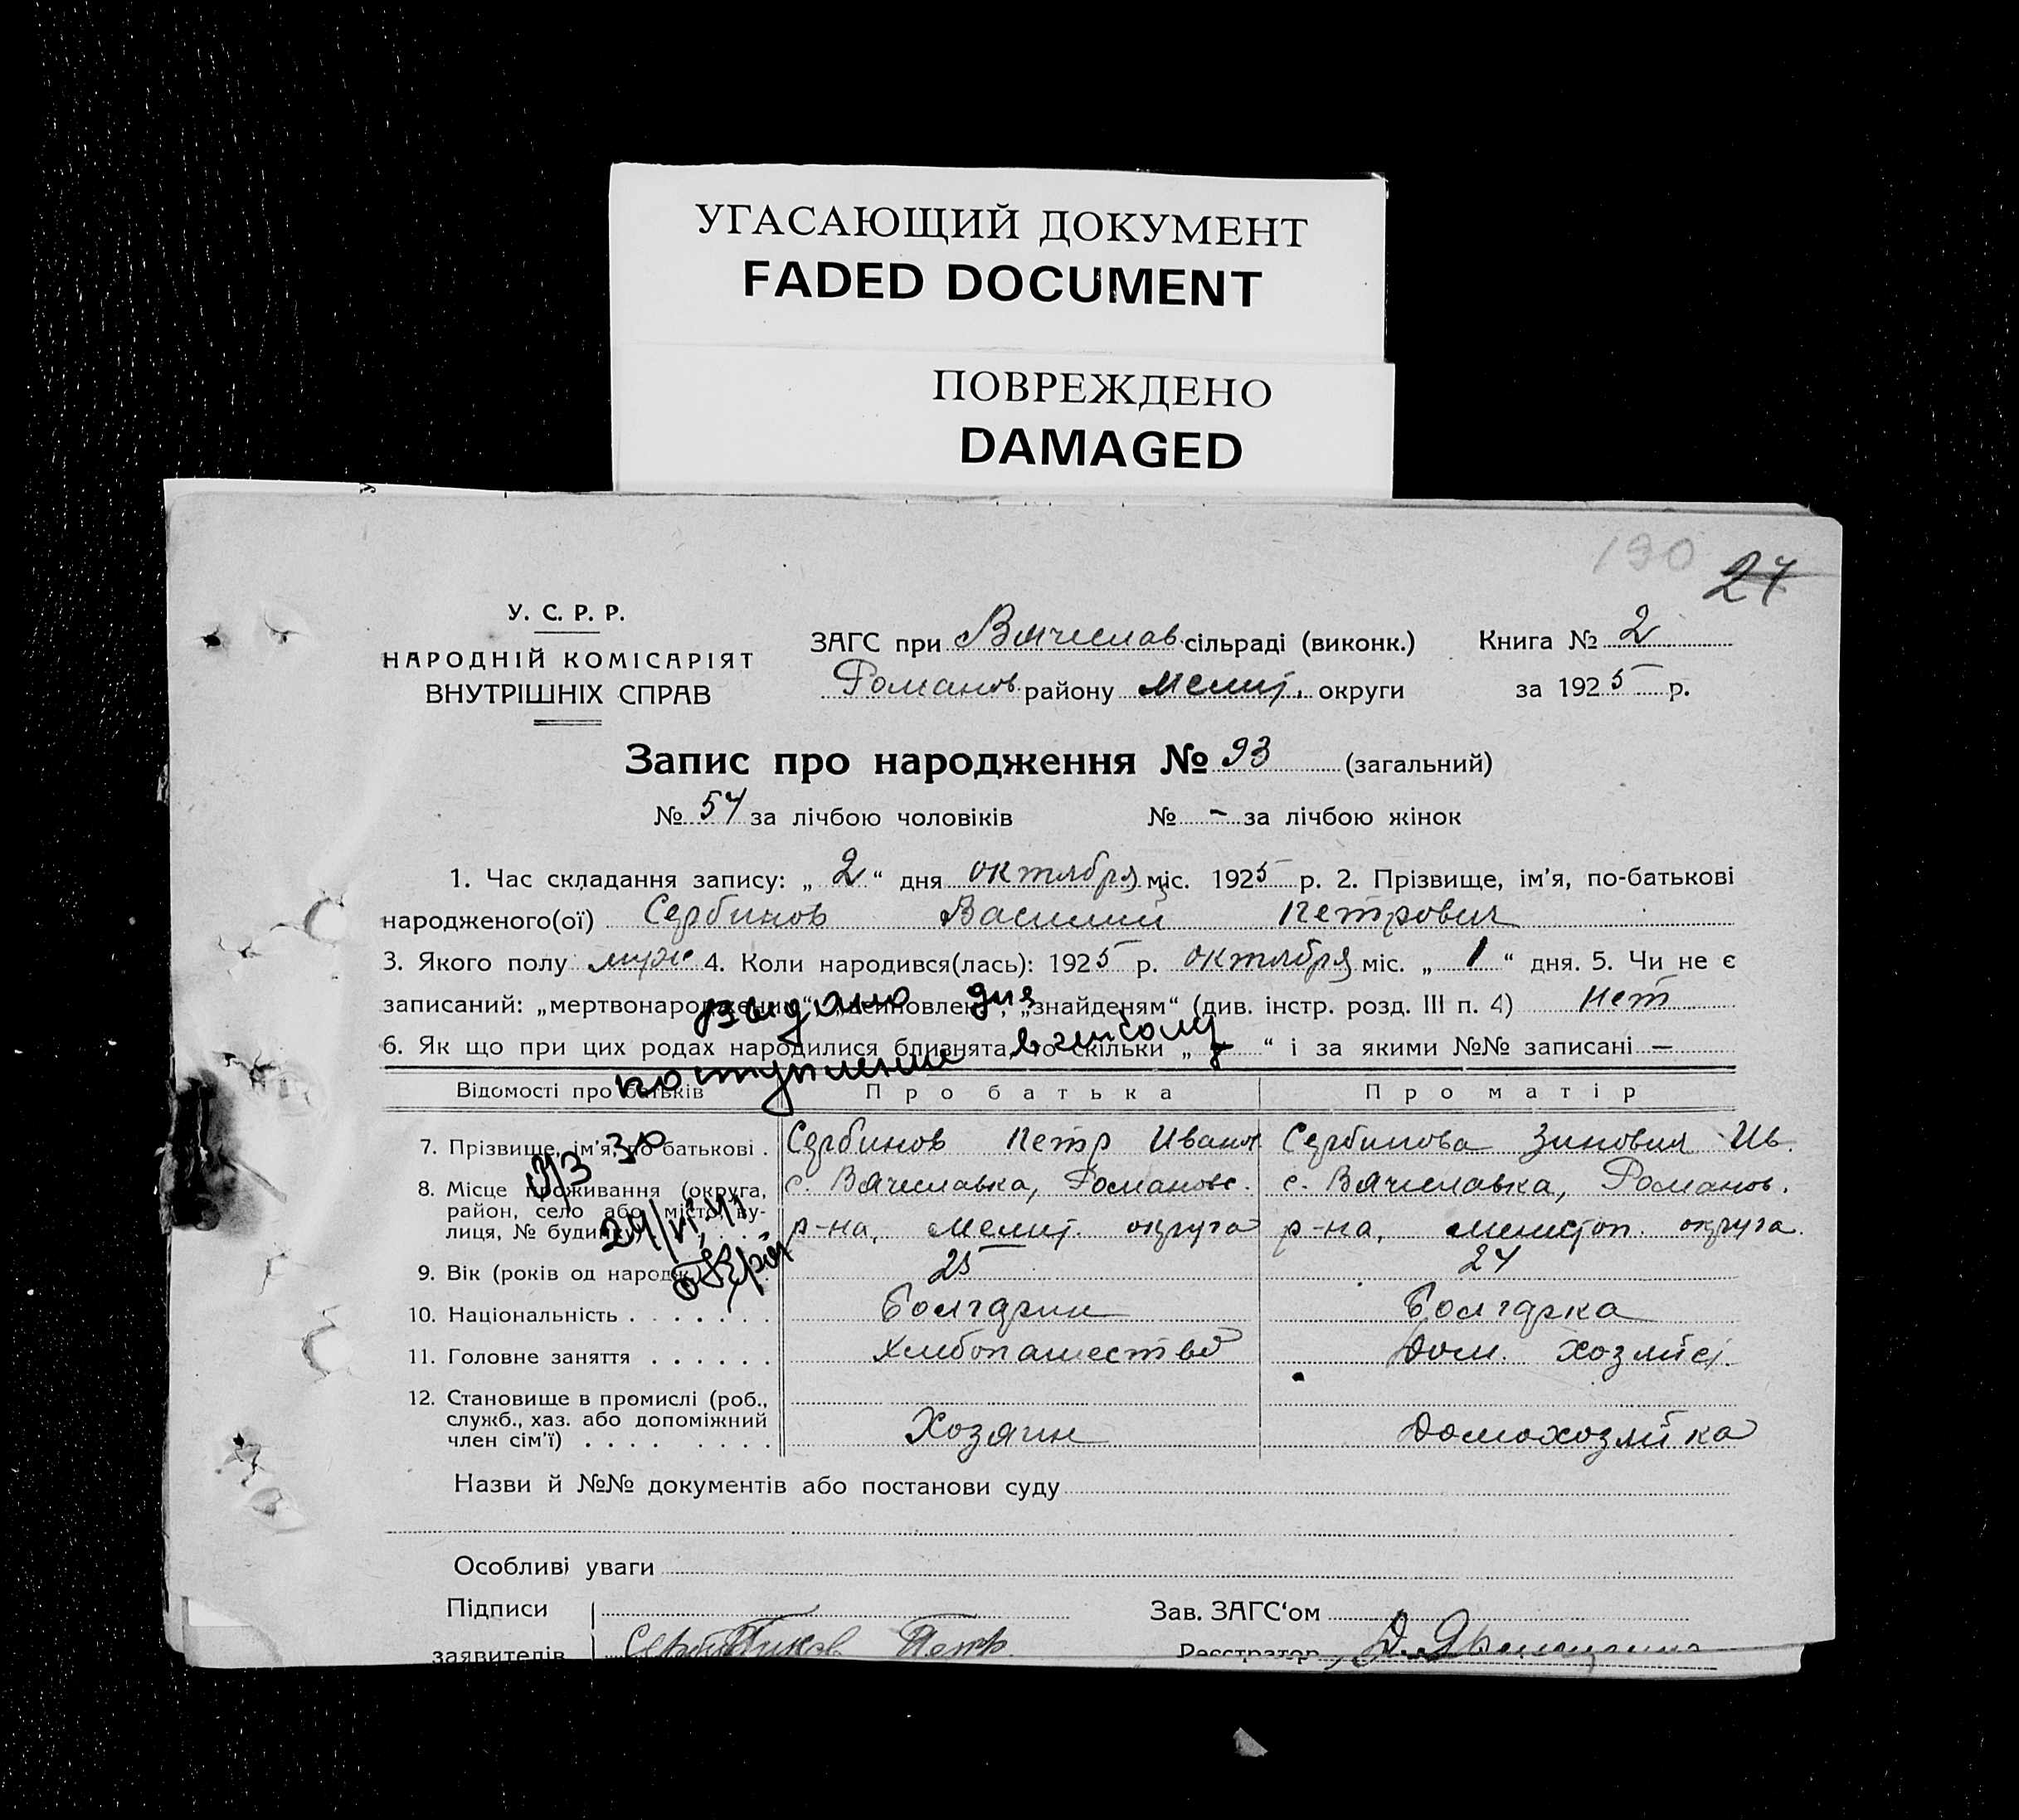 УГАСАЮЩИЙ ДОКУМЕНТ
FADED DOCUMENT
ПОВРЕЖДЕНО
DAMAGED
190 24
У. С. Р. Р.
НАРОДНІЙ КОМІСАРІЯТ
ВНУТРІШНІХ СПРАВ
ЗАГС при Вячеслав. сільраді (виконк.) Книга № 2
Романов. району Мелит. округи за 1925 р.
Запис про народження № 93 (загальний)
№ 54 за лічбою чоловіків № - за лічбою жінок
1. Час складання запису: „ 2 “ дня октября міс. 1925 р. 2. Прізвище, ім'я, по-батькові
народженого(ої) Сербинов Василий Петрович
3. Якого полу муж 4. Коли народився(лась): 1925 р. октября міс. „ 1 “ дня. 5. Чи не є
записаний: „мертвонародженим“, „всиновлен.“, „знайденям“ (див. інстр. розд. III п. 4) нет
6. Як що при цих родах народилися близнята, то скільки „ - “ і за якими №№ записані —
выдано для
поступления в школу
Відомості про батьків Про батька Про матір
7. Прізвище, ім'я, по батькові . Сербинов Петр Иванов Сербинова Зиновия Ив.
8. Місце проживання (округа, район, село або місто, вулиця, № будинку) с. Вячеславка, Романовс. с. Вячеславка, Романов.
р-на, Мелит. округа р-на, Мелитоп. округа.
9. Вік (років од народж.) 25 24
10. Національність . . . . . . . Болгарин Болгарка
11. Головне заняття . . . . . . Хлебопашество Дом. хозяйст.
12. Становище в промислі (роб.,
служб., хаз. або допоміжний
член сім'ї) . . . . . . . . Хозяин Домохозяйка
Назви й №№ документів або постанови суду
Особливі уваги
Підписи Зав. ЗАГС‘ом
заявителів Сербинов Петр. Реєстратор